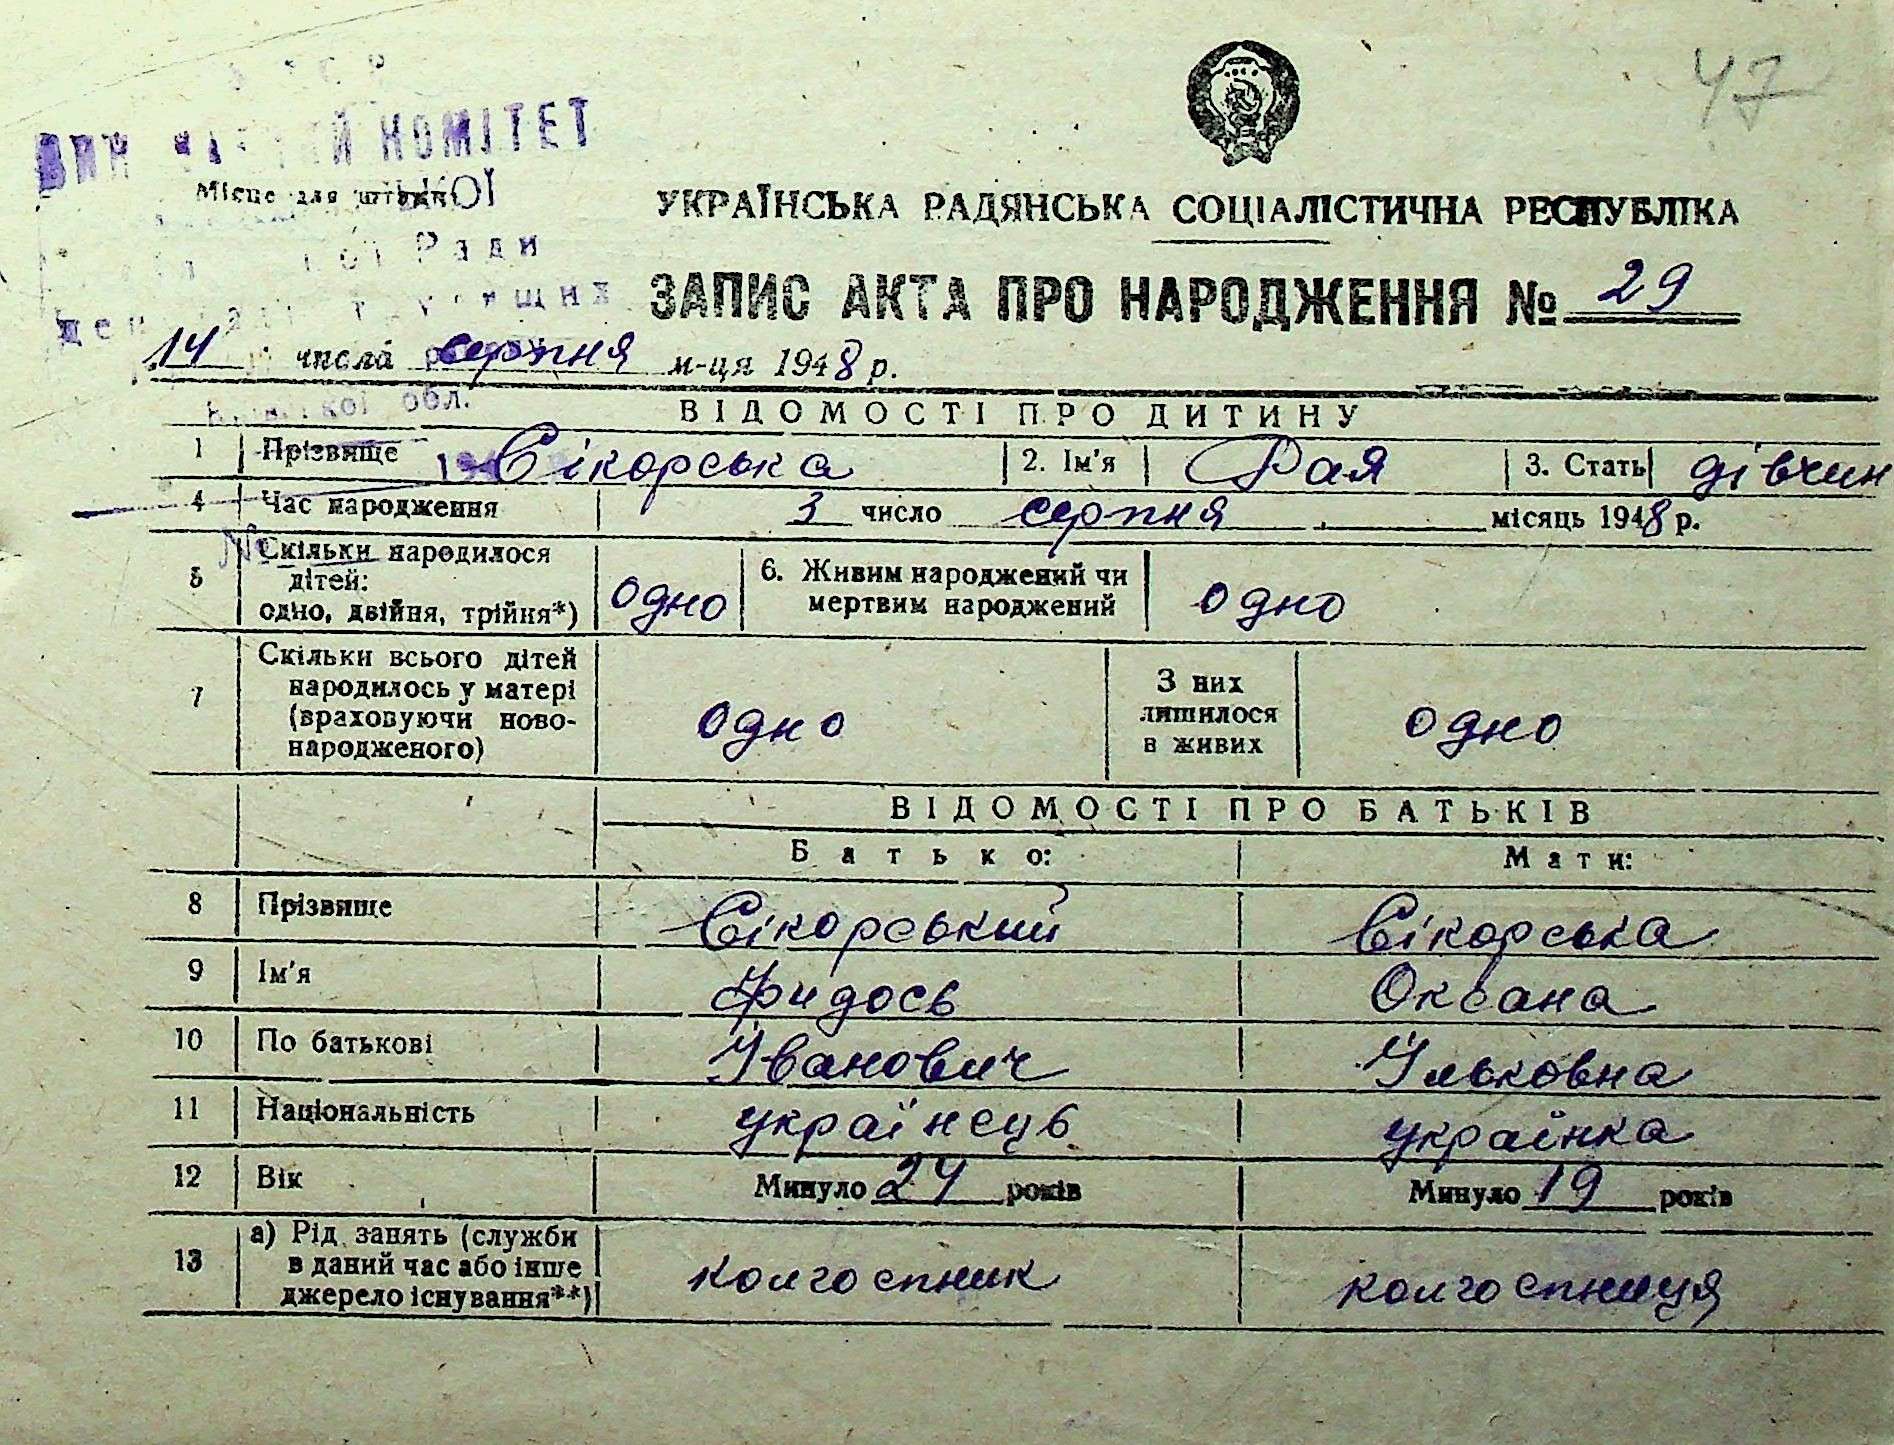 47
КОМІТЕТ
Місце для штампу
УКРАЇНСЬКА РАДЯНСЬКА СОЦІАЛІСТИЧНА РЕСПУБЛІКА
Ради
ЗАПИС АКТА ПРО НАРОДЖЕННЯ № 29
14 числа серпня м-ця 1948 р.
обл.
ВІДОМОСТІ ПРО ДИТИНУ
1 Прізвище Сікорська 2. Ім'я Рая 3. Стать дівчин
4 Час народження 3 число серпня місяць 1948 р.
№
5 Скільки народилося
дітей:
одно, двійня, трійня*) одно 6. Живим народжений чи
мертвим народжений одно
7 Скільки всього дітей
народилось у матері
(враховуючи ново-
народженого) одно З них
лишилося
в живих одно
ВІДОМОСТІ ПРО БАТЬКІВ
Батько: Мати:
8 Прізвище Сікорський Сікорська
9 Ім'я Фидось Оксана
10 По батькові Іванович Ільковна
11 Національність українець українка
12 Вік Минуло 24 років Минуло 19 років
13 а) Рід занять (служби
в даний час або інше
джерело існування**) колгоспник колгоспниця